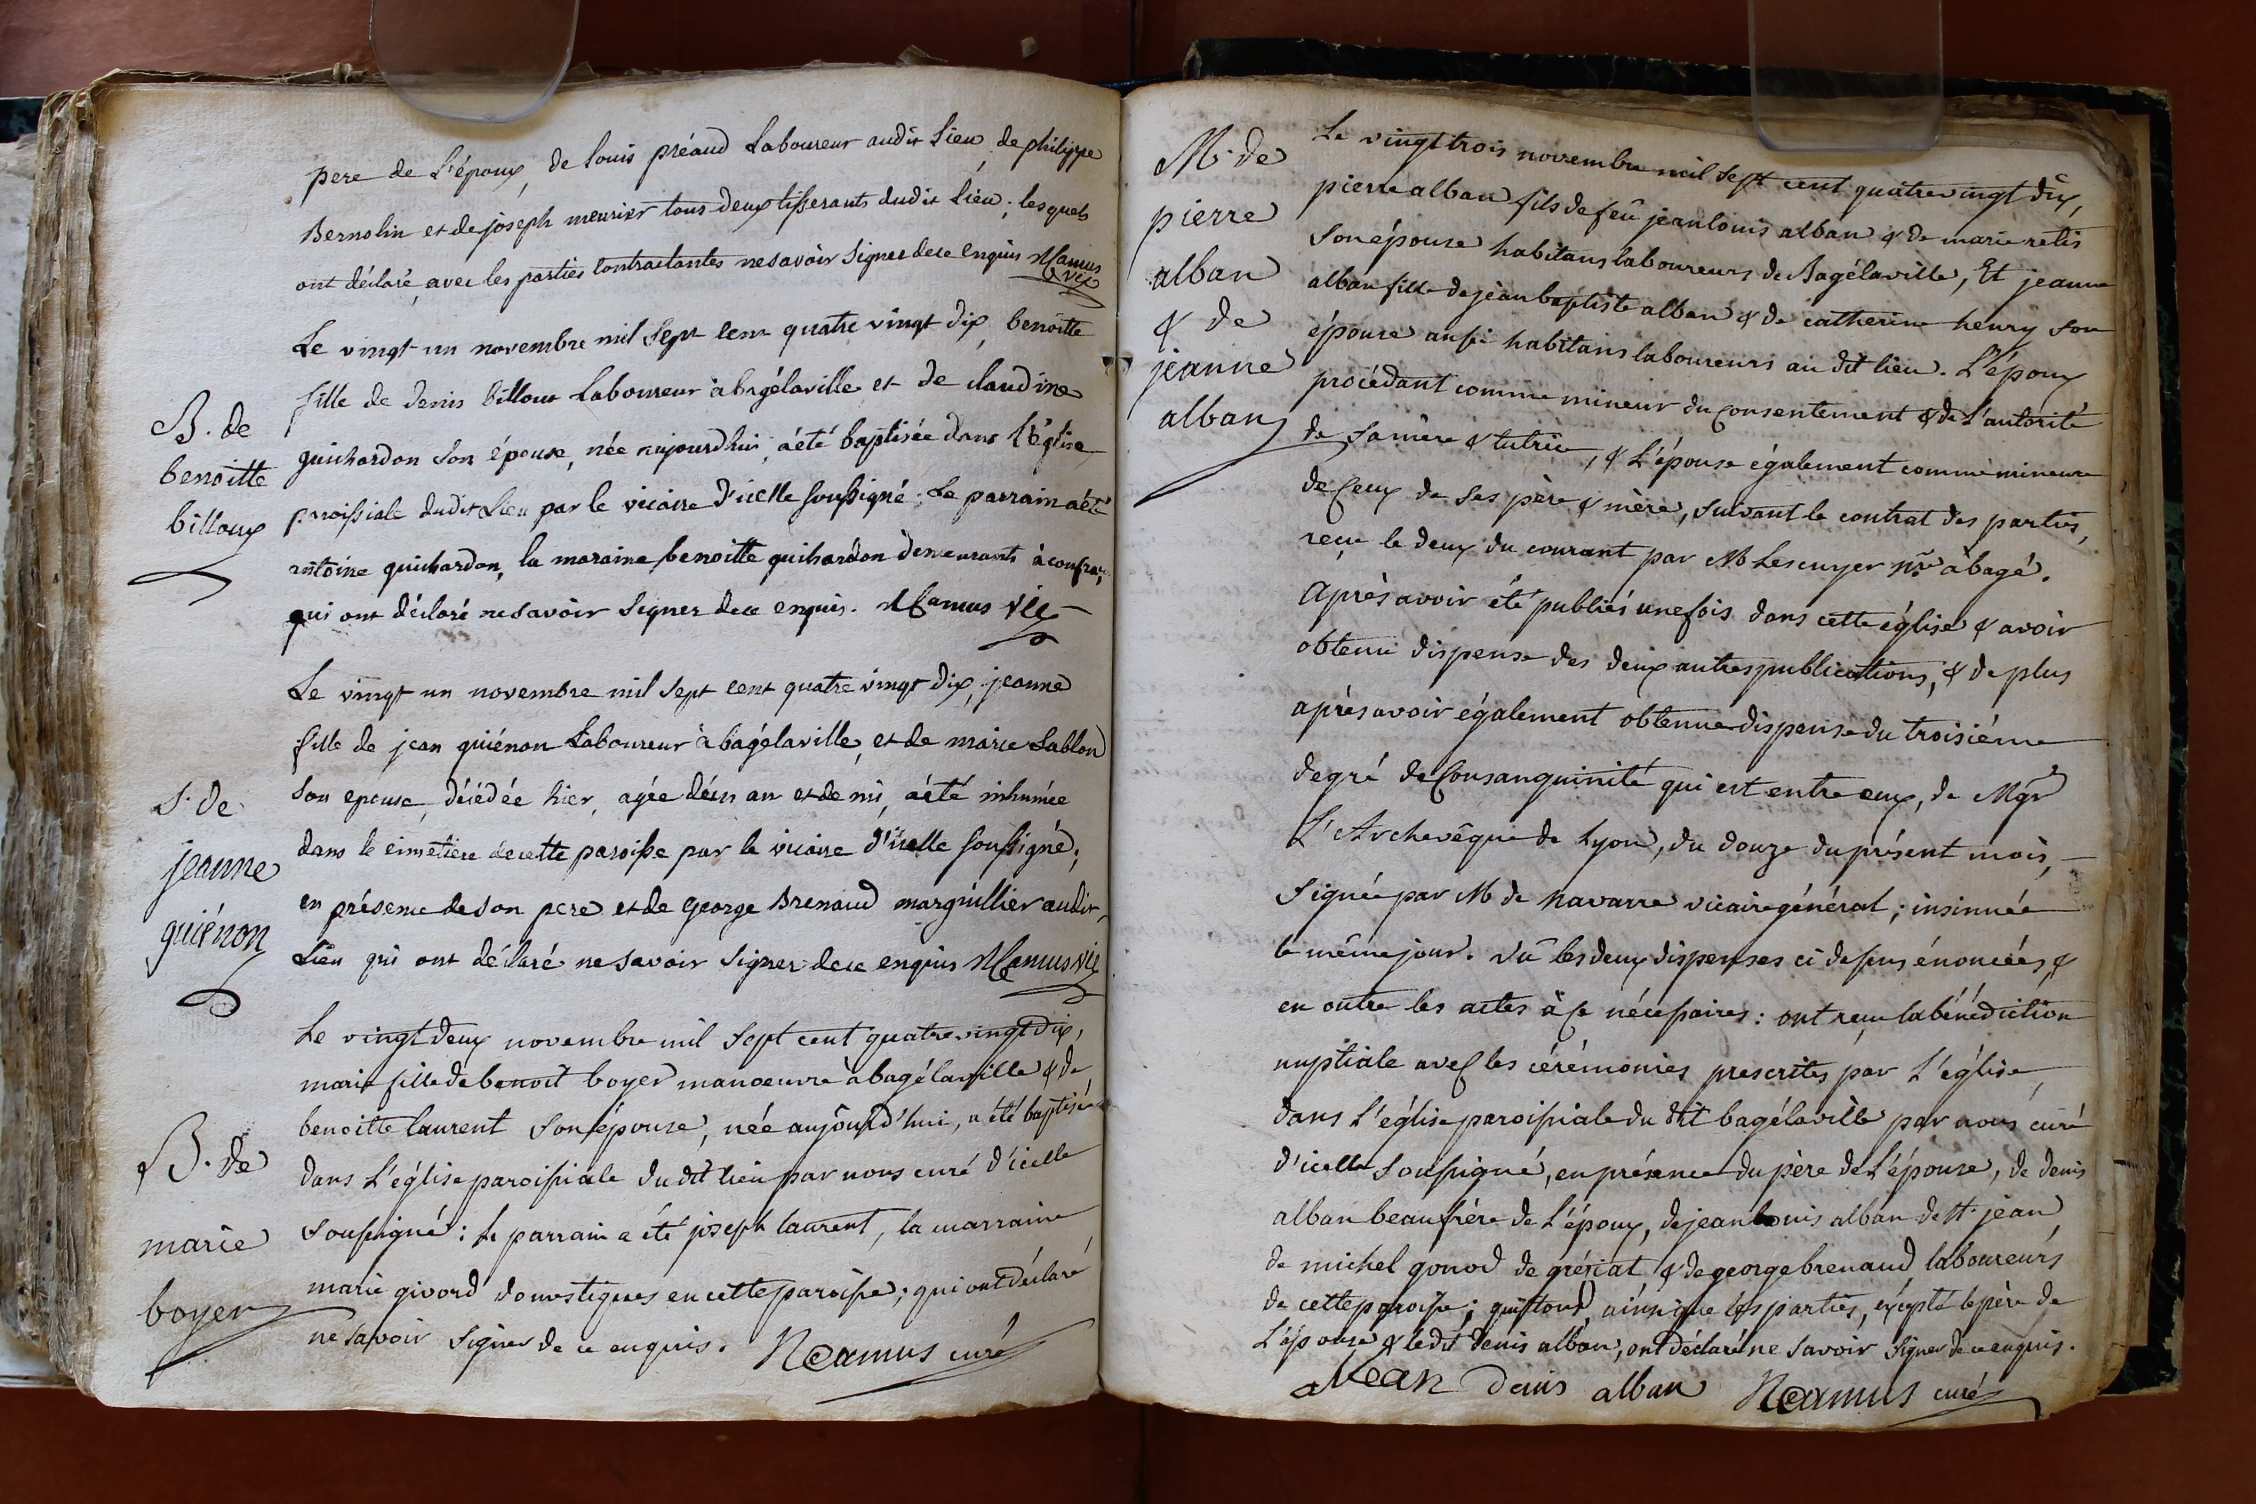 pere de L'époux, de louis préaud Laboureur audit Lieu, de philippe
Bernolin et de joseph meurier tous deux tisserants dudit Lieu; lesquels
ont déclaré, avec les parties contractantes ne savoir signer de ce enquis N Camus
vic
Le vingt un novembre mil sept cent quatre vingt dix, benoitte
fille de denis billoux Laboureur à bagélaville et de claudine
guichardon son épouse, née aujourdhui, a été baptisée dans l'église
paroissiale dudit Lieu par le vicaire d'icelle soussigné; Le parrain a été
antoine guichardon, la maraine benoitte guichardon demeurants à
qui ont déclaré ne savoir signer de ce enquis. N Camus vic
B. de
benoitte
billoux
Le vingt un novembre mil sept cent quatre vingt dix, jeanne
fille de jean guiénon Laboureur à bagélaville, et de marie Sablon
son epouse, décédée hier, agée d'un an et demi, a été inhumée
dans le cimetiere de cette paroisse par le vicaire d'icelle soussigné;
en présence de son pere et de George Brenaud marguillier audit
Lieu qui ont déclaré ne savoir signer de ce enquis N Camus vic
S. de
jeanne
guiénon
Le vingt deux novembre mil sept cent quatre vingt dix,
marie fille de benoit boyer manoeuvre à bagélaville & de
benoitte laurent son épouse, née aujourd'hui, a été baptisée
dans L'église paroissiale du dit lieu par nous curé d'icelle
soussigné: le parrain a été joseph laurent, la marraine
marie givord domestiques en cette paroisse; qui ont déclaré
ne savoir signer de ce enquis. N Camus curé
B. de
marie
boyer
M. de
pierre
alban
& de
jeanne
alban
Le vingt trois novembre mil sept cent quatre vingt dix,
pierre alban fils de feu jean louis alban & de marie retis
son épouse habitans laboureurs de Bagélaville, Et jeanne
alban fille de jean baptiste alban & de catherine henry son
épouse aussi habitans laboureurs au dit lieu. L'époux
procédant comme mineur du consentement & de L'autorité
de sa mère & tutrice, & L'épouse également comme mineure
de ceux de ses père & mère, suivant le contrat des parties,
reçu le deux du courant par M Lescuyer nre à bagé.
Après avoir été publiés une fois dans cette église & avoir
obtenu dispense des deux autres publications, & de plus
après avoir également obtenue dispense du troisième
degré de consanguinité qui est entre eux, de Mgr
L'Archevêque de Lyon, du douze du présent mois,
signée par M de Navarre vicaire général; insinuée
le même jour. Vû les deux dispenses ci dessus énoncées, &
en outre les actes à ce nécessaires: ont reçu la bénédiction
nuptiale avec les cérémonies prescrites par L'église,
dans L'église paroissiale du dit bagélaville par nous curé
d'icelle soussigné, en présence du père de L'épouse, de denis
alban beaufrère de L'époux, de jean louis alban de St jean,
de michel gonod de grésiat & de george brenaud laboureurs
de cette paroisse; qui tous, ainsi que les parties, excepté le père de
L'épouse & le dit denis alban, ont déclaré ne savoir signer de ce enquis.
Jean denis alban N Camus curé